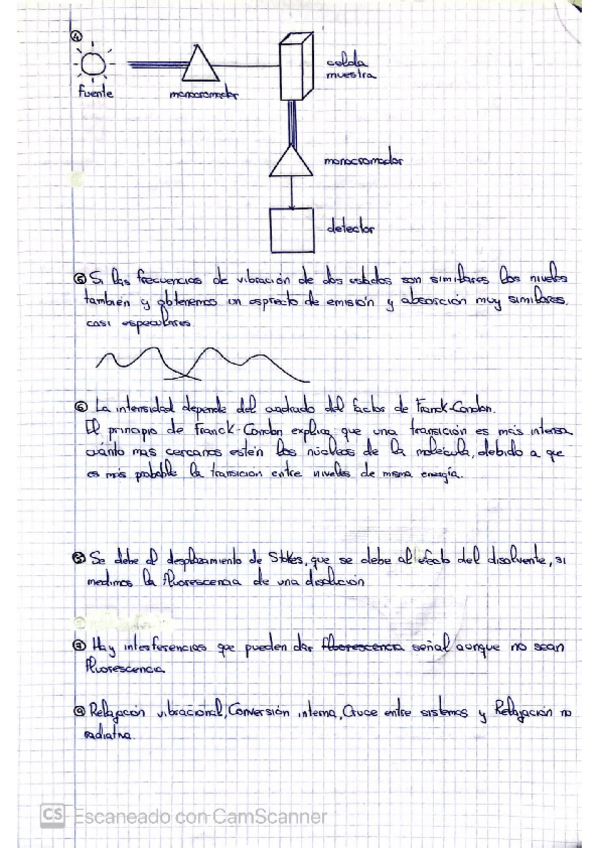 ④
fuente
monocromador
celda
muestra
monocromador
detector
⑤ Si las frecuencias de vibración de dos estados son similares los niveles
también y obtenemos un espectro de emisión y absorción muy similares,
casi especulares
⑥ La intensidad depende del cuadrado del factor de Franck-Condon.
El principio de Franck-Condon explica que una transición es más intensa
cuánto mas cercanos estén los núcleos de la molécula, debido a que
es más probable la transición entre niveles de misma energía.
Se debe al desplazamiento de Stokes, que se debe al efecto del disolvente, si
medimos la fluorescencia de una disolución
Hay interferencias que pueden dar fluorescencia señal aunque no sean
fluorescencia
⑨ Relajación vibracional, Conversión interna, Cruce entre sistemas y Relajación no
radiativa.
CS Escaneado con CamScanner